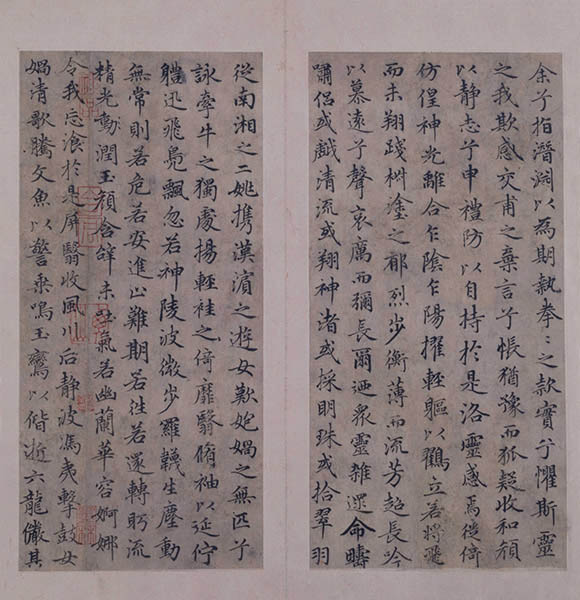 余兮指潛淵以為期執拳〻之款實兮懼斯靈
之我欺感交甫之棄言兮悵猶豫而狐疑收和顏
以靜志兮申禮防以自持於是洛靈感焉徙倚
仿偟神光離合乍陰乍陽擢輕軀以鶴立若將飛
而未翔踐椒塗之郁烈步衡薄而流芳超長吟
以慕遠兮聲哀厲而彌長爾迺眾靈雜遝命疇
嘯侶或戲清流或翔神渚或採明珠或拾翠羽
從南湘之二姚攜漢濱之遊女歎媧之無匹兮
詠牽牛之獨處揚輕袿之倚靡翳脩袖以延佇
體迅飛鳧飄忽若神陵波微步羅韈生塵動
無常則若危若安進止難期若往若還轉眄流
精光動潤玉顏含辭未吐氣若幽蘭華容婀娜
令我忘飡於是屏翳收風川后靜波馮夷擊鼓女
媧清歌騰文魚以警乘鳴玉鸞以偕逝六龍儼其